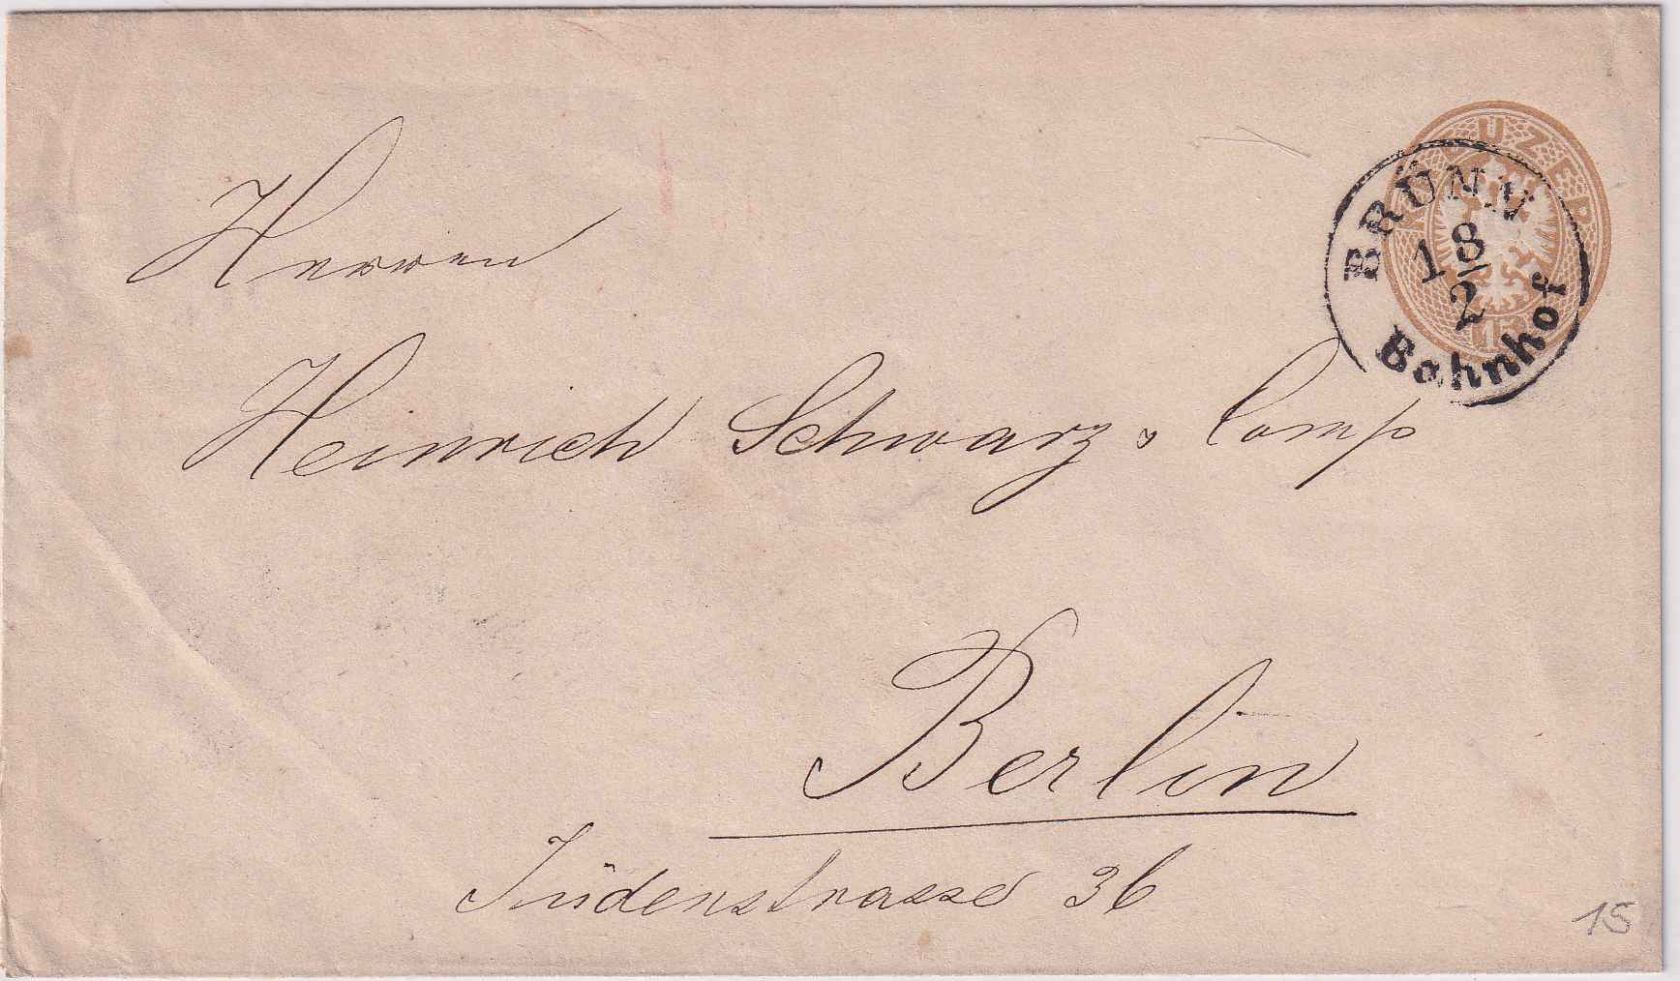 UZER
15
BRÜNN
18
2
Bahnhof
Herren
Heinrich Schwarz & Comp
Berlin
Jüdenstrasse 36
15